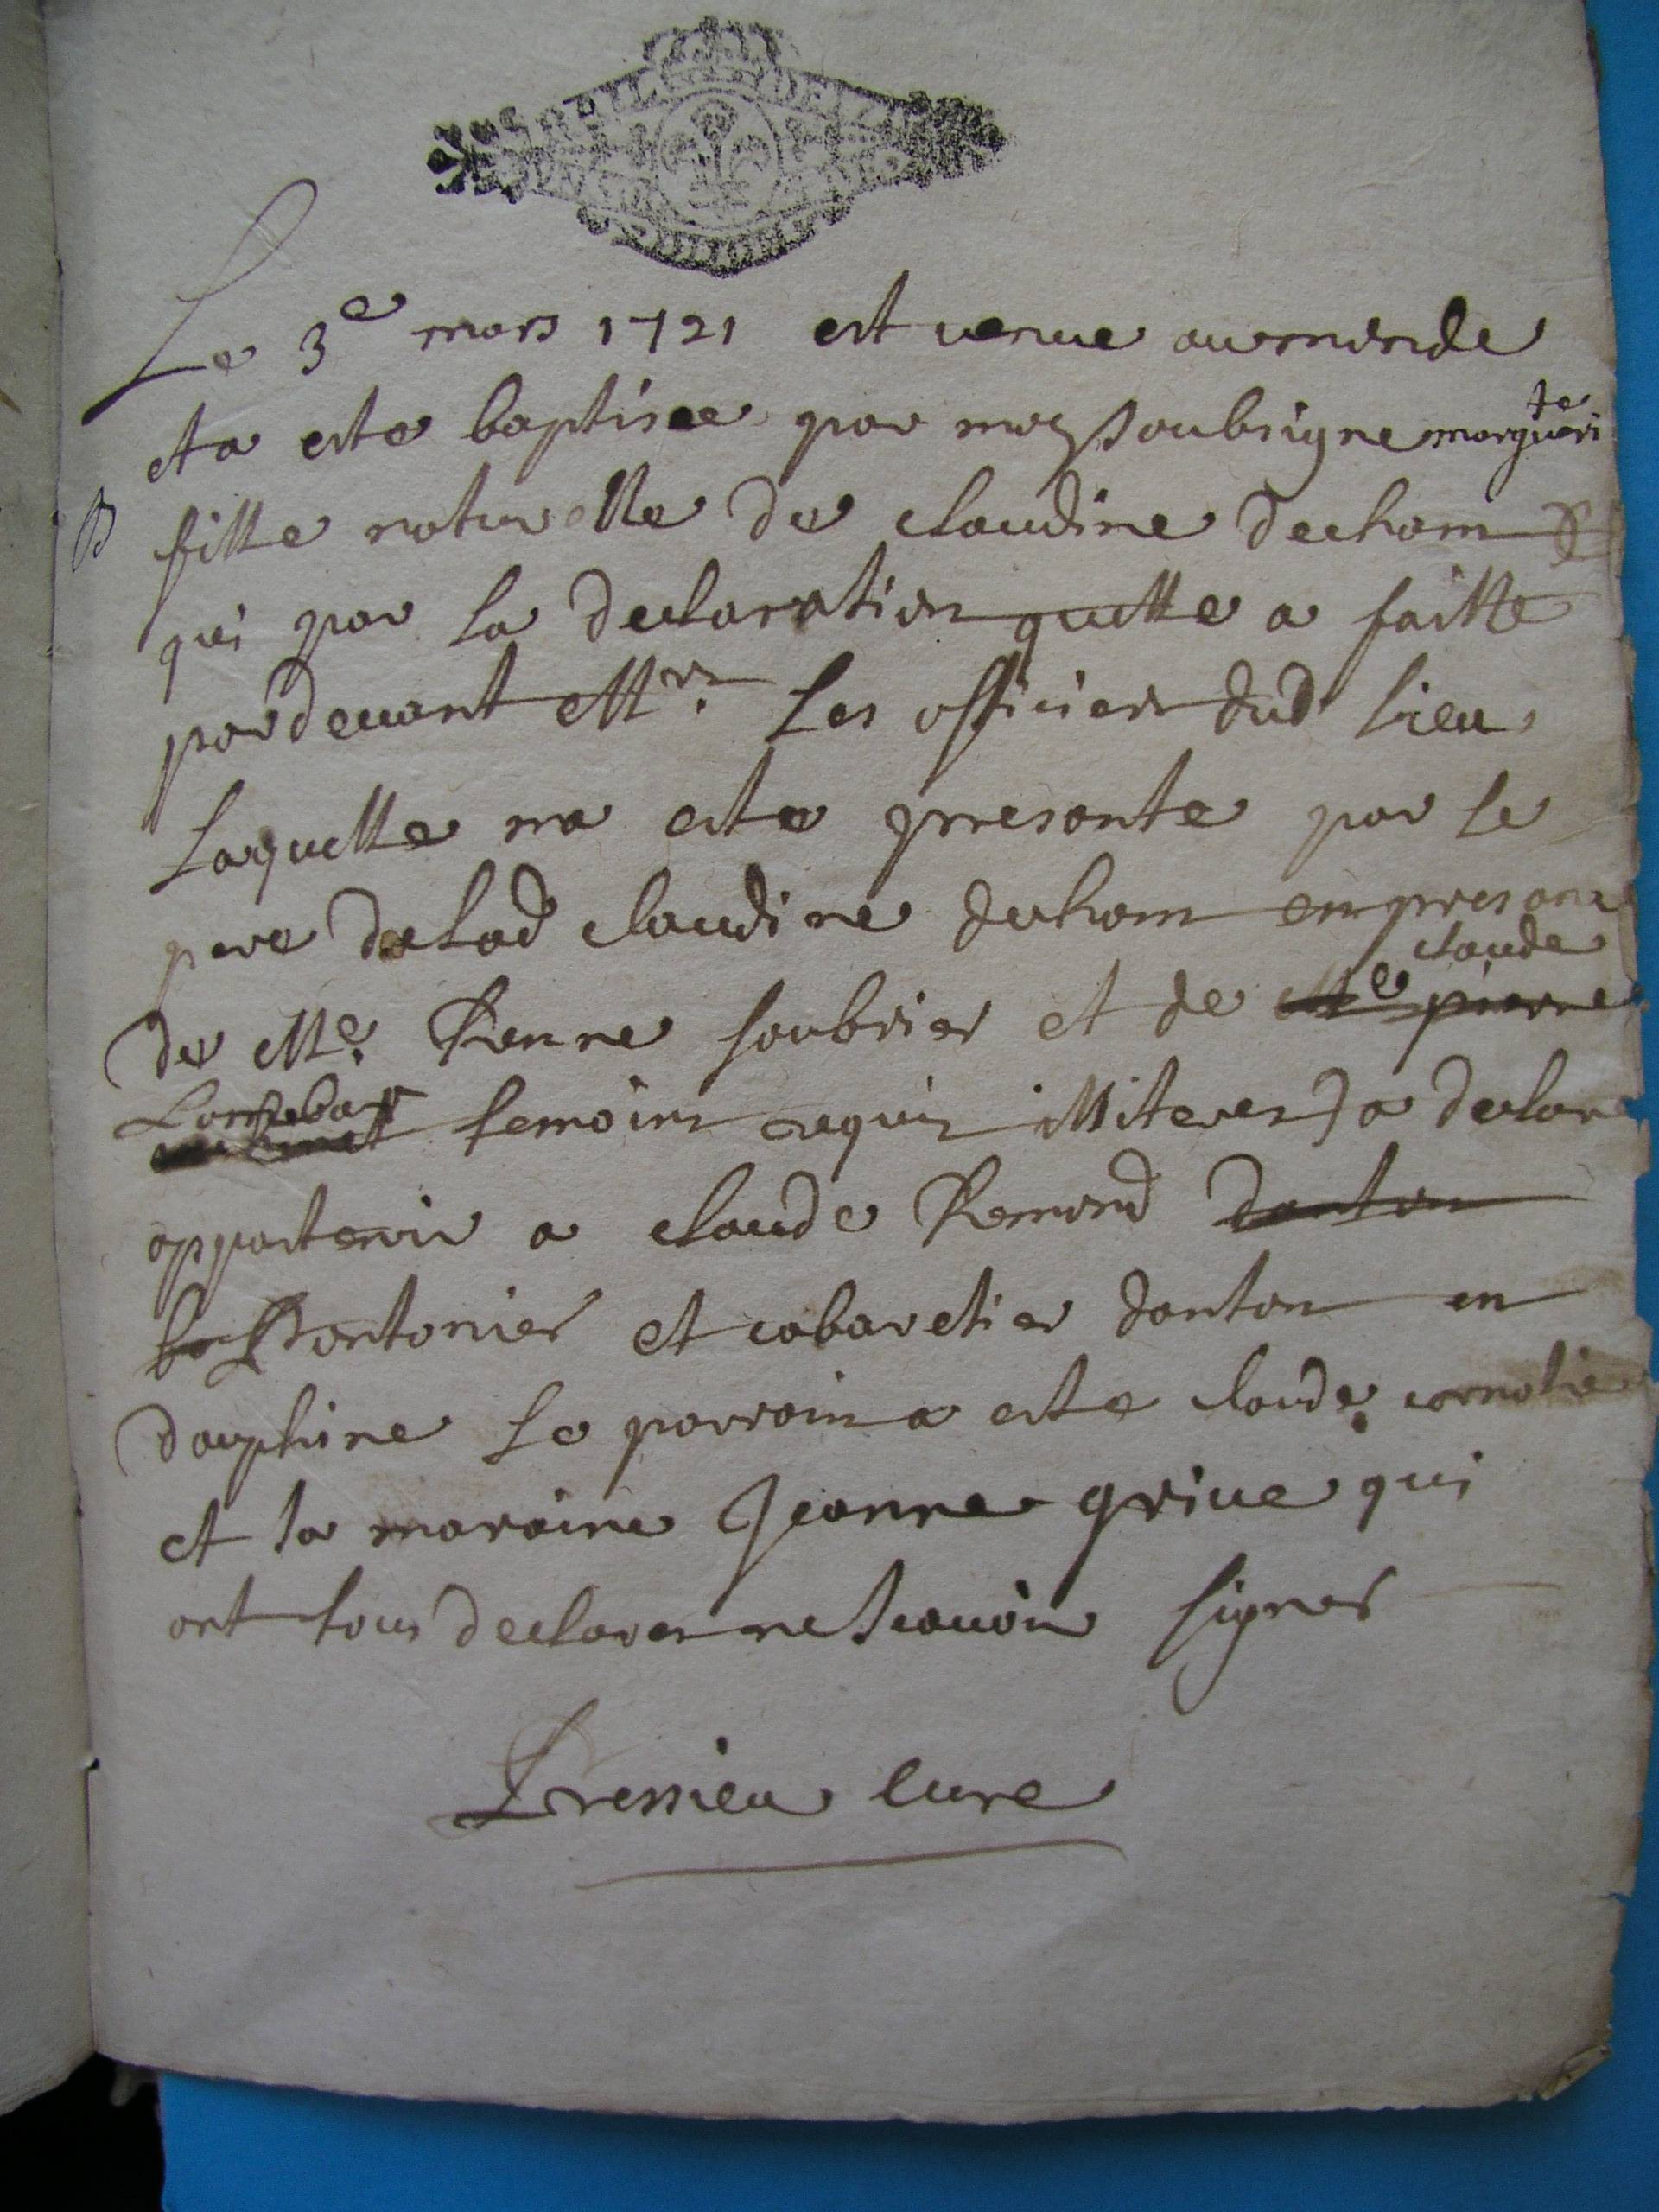 Le 3e mars 1721 est venue au monde
et a esté baptisée par moy soubsigne margueri
te
B fille naturelle de claudine decham
qui par la declaration quelle a faitte
pardevant Mrs. Les officiers dud lieu
Laquelle ma este presante par le
pere de lad claudine decham en presan
de Me. Renne soubrier et de Me pierre
claude
temoins requis illiteres) a declar
appartenir a claude Remond danton
Pontonier et cabaretier danton en
dauphine Le parrain a este claude cornotie
et la maraine Jeanne grive qui
ont tous declares ne scavoir signer
Pressieu cure